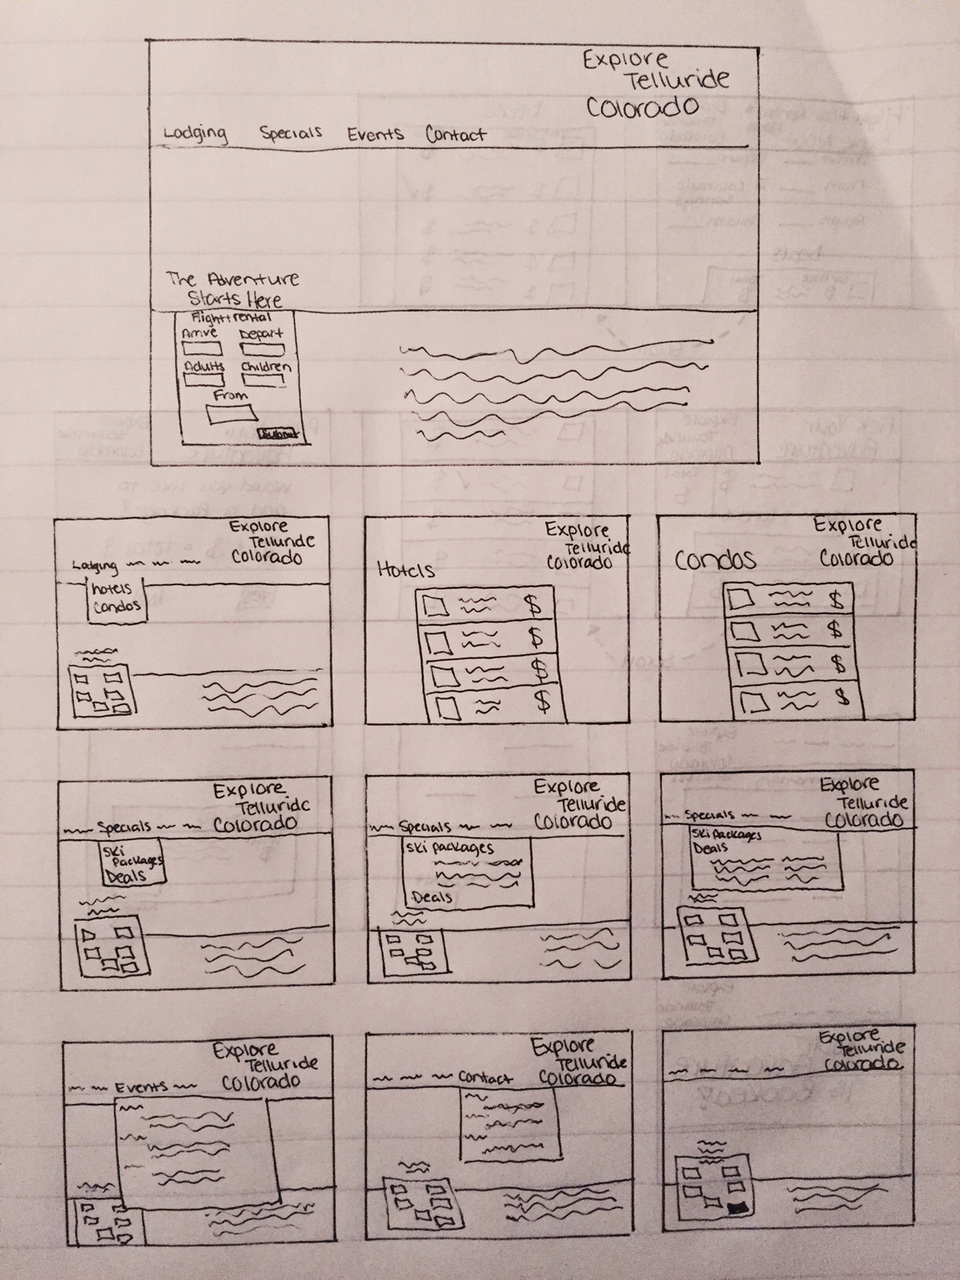 Explore
Telluride
Colorado
Lodging Specials Events Contact
The Adventure
Starts Here
Flight+rental
Arrive Depart
Adults Children
From
Submit
Explore
Telluride
Colorado
Lodging
hotels
condos
Explore
Telluride
Colorado
Hotels
$
$
$
$
Explore
Telluride
Colorado
Condos
$
$
$
$
Explore
Telluride
Colorado
Specials
Ski
Packages
Deals
Explore
Telluride
Colorado
Specials
Ski packages
Deals
Explore
Telluride
Colorado
Specials
Ski Packages
Deals
Explore
Telluride
Colorado
Events
Explore
Telluride
Colorado
Contact
Explore
Telluride
Colorado